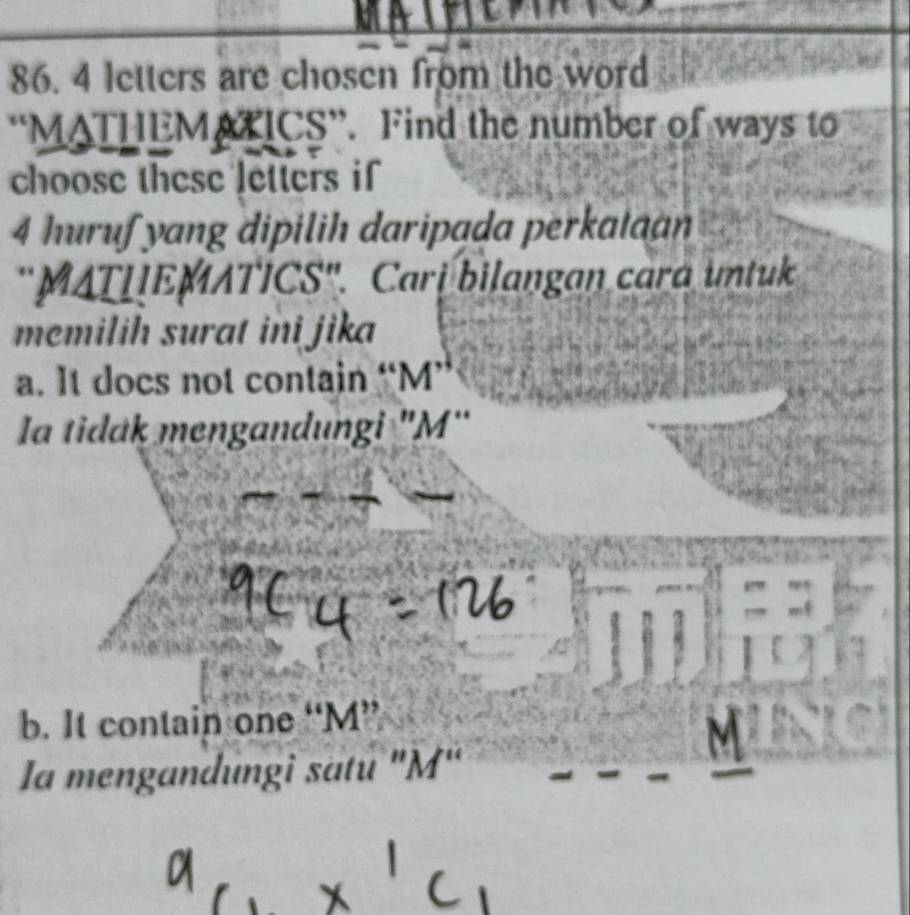 86. 4 letters are chosen from the word
“MATHEMATICS”. Find the number of ways to
choose these letters if
4 huruf yang dipilih daripada perkataan
"MATHEMATICS". Cari bilangan cara untuk
memilih surat ini jika
a. It does not contain “M”
Ia tidak mengandungi "M"
9C4 = 126
b. It contain one “M”
M
Ia mengandungi satu "M"